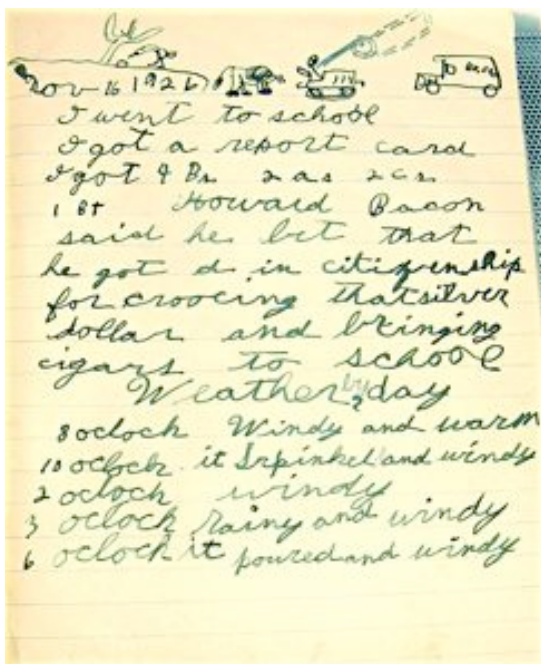 Nov 16 1926
I went to school
I got a report card
I got 9 Bs 2 as 2 cs
1 Bt Howard Bacon
said he bet that
he got d in citizenship
for croocing that silver
dollar and bringing
cigars to school
Weather by day
8 oclock Windy and warm
10 oclock it Srpinkel and windy
2 oclock windy
3 oclock rainy and windy
6 oclock it poured and windy